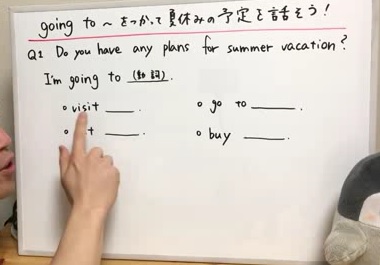 going to ~ をつかって夏休みの予定を話そう!
Q1 Do you have any plans for summer vacation?
I'm going to (動詞).
visit ____. go to ____.
t ____. buy ____.